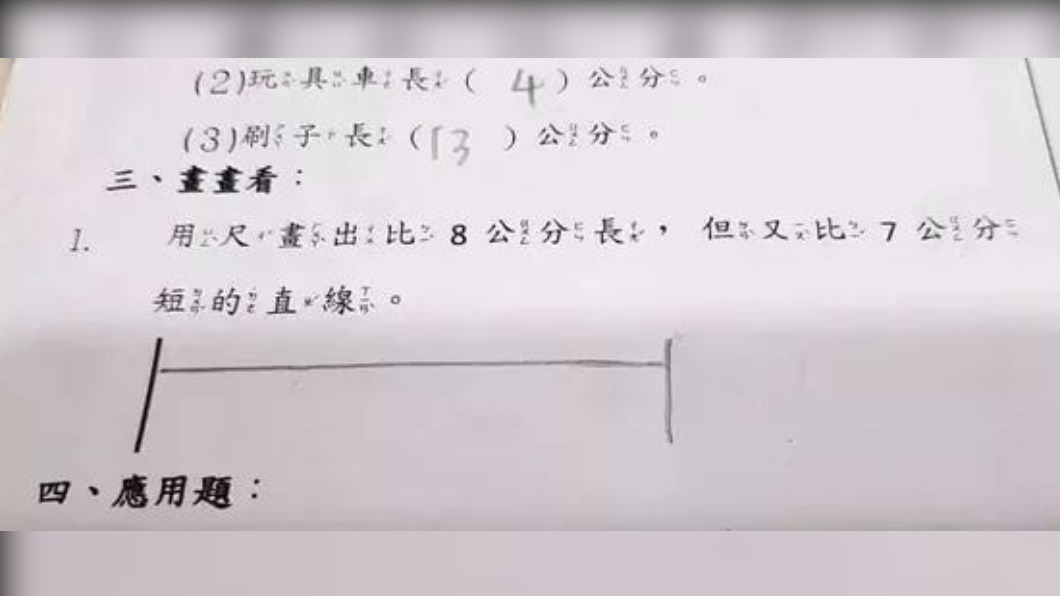 (2)玩具車長( 4 )公分。
(3)刷子長(13 )公分。
三、畫畫看：
1. 用尺畫出比 8 公分長，但又比 7 公分
短的直線。
四、應用題：